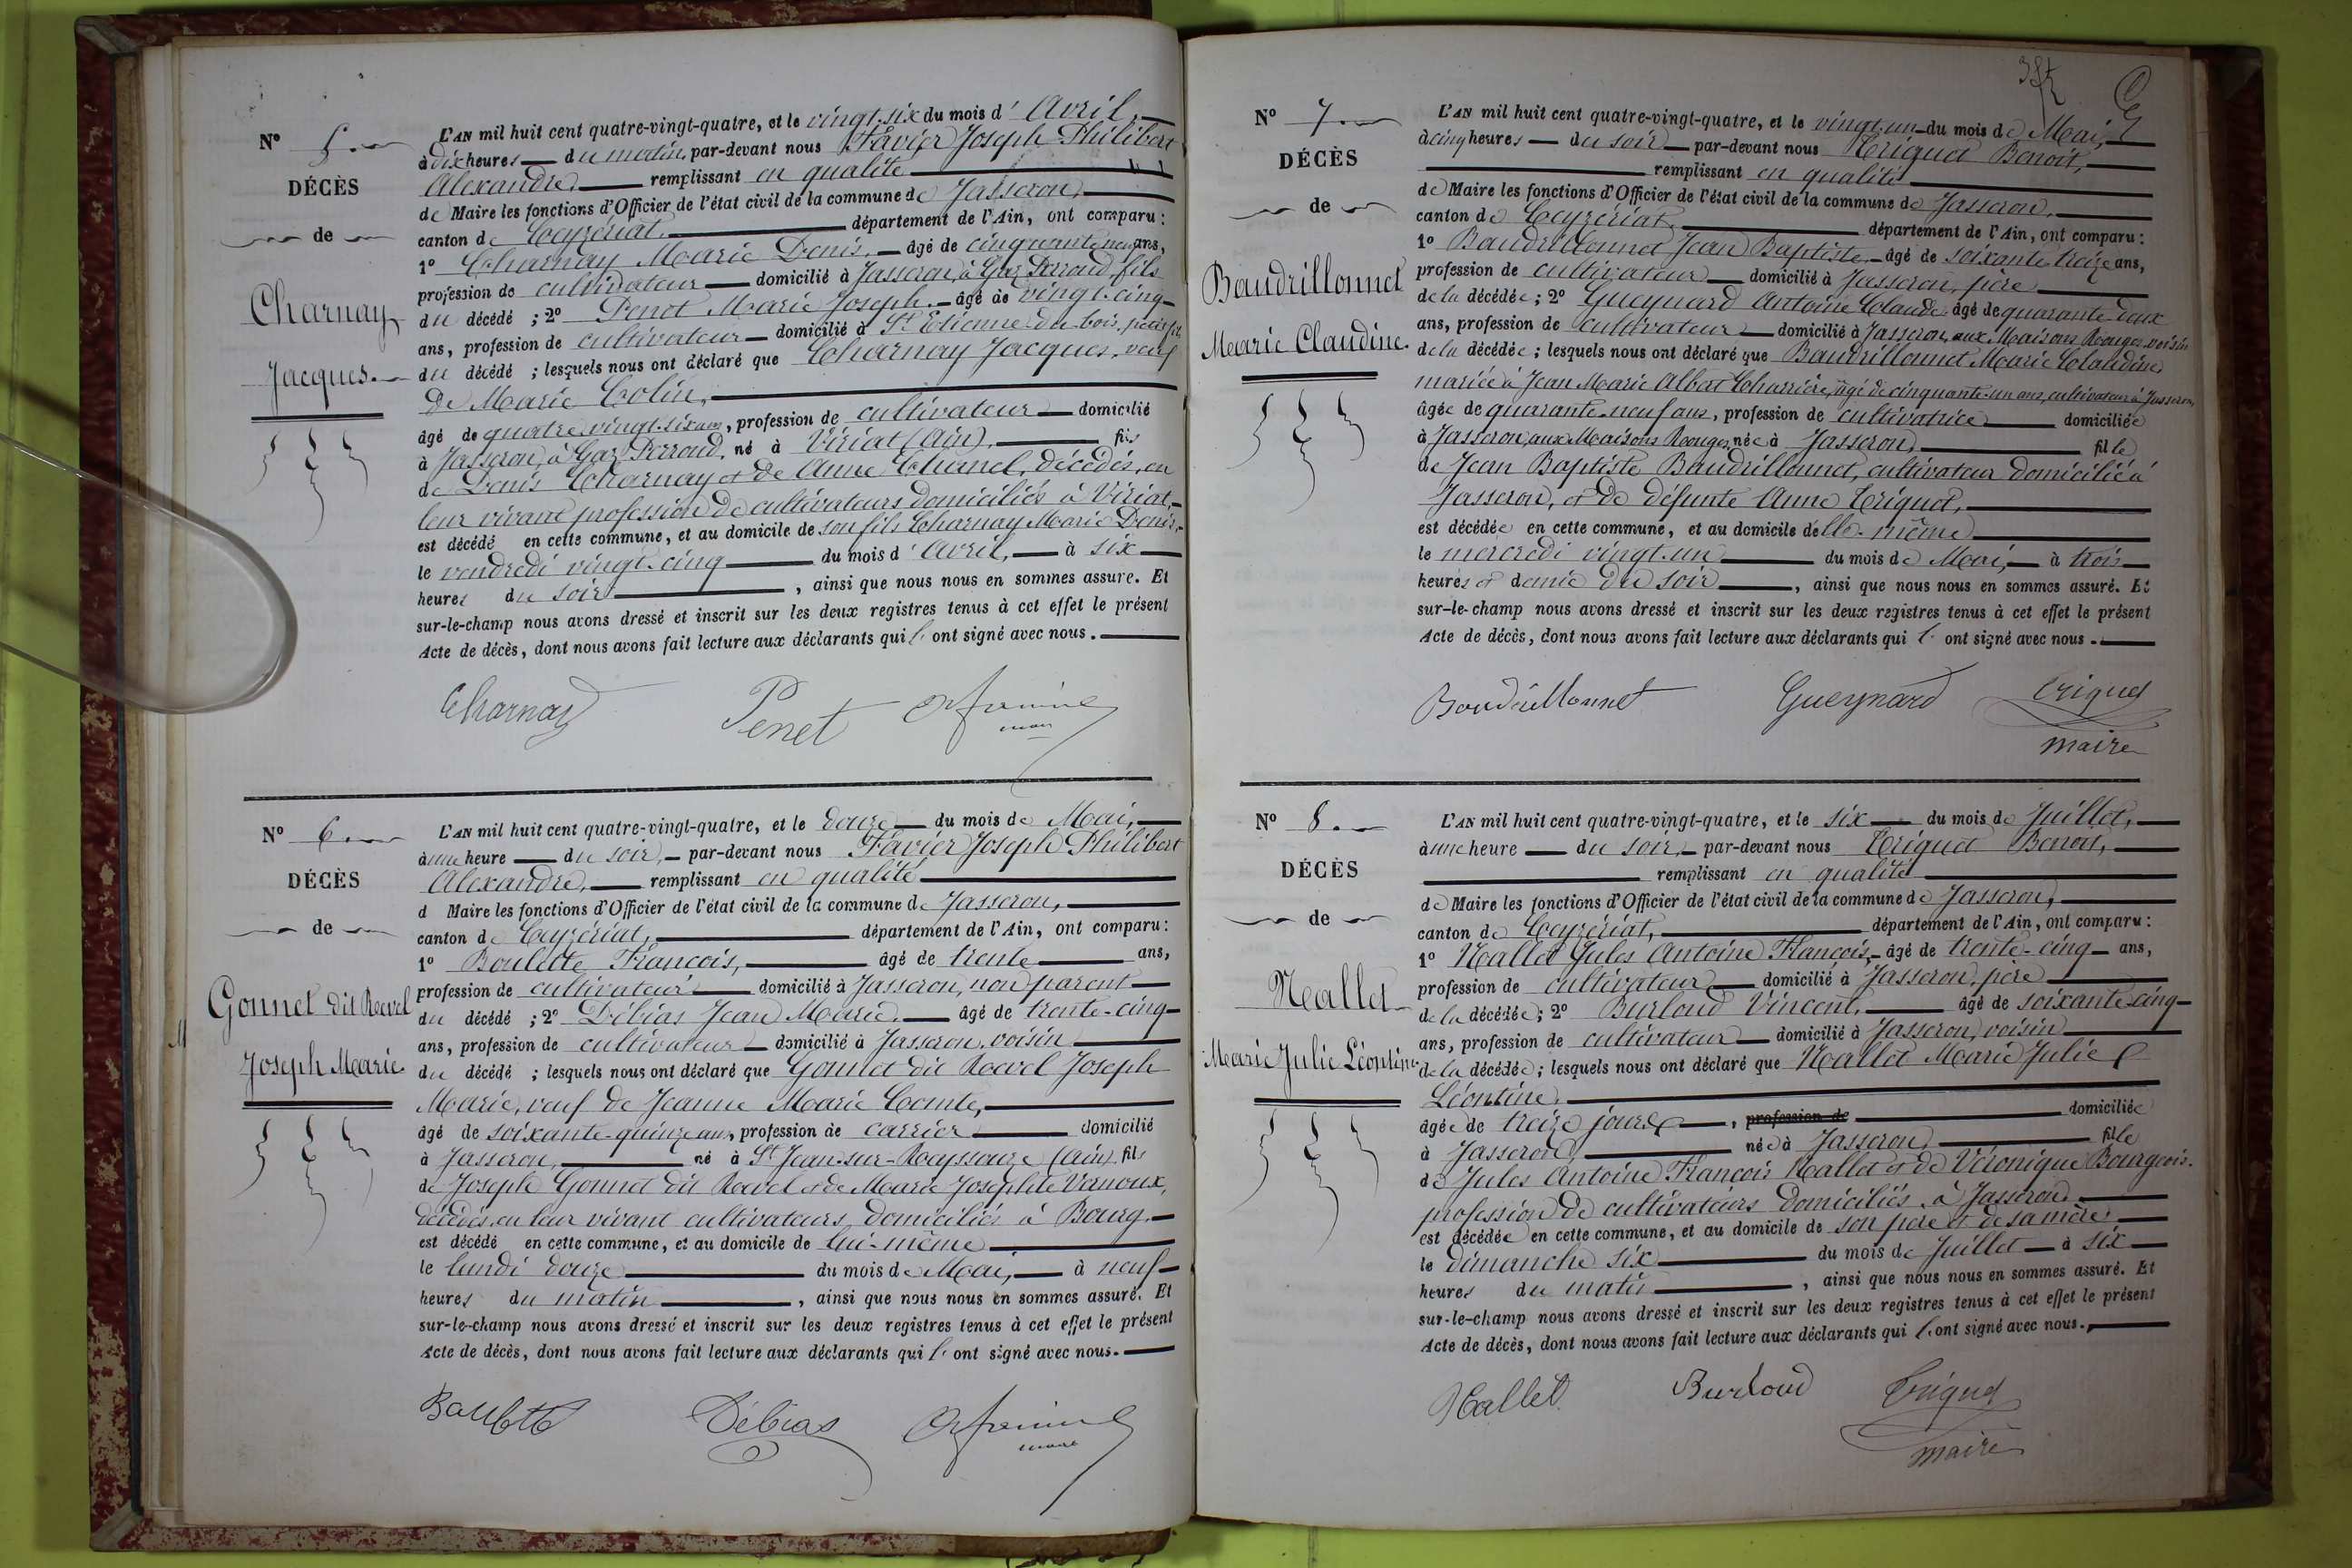 Nº 5.
DÉCÈS
de
Charnay
Jacques.
L'AN mil huit cent quatre-vingt-quatre, et le vingt-six du mois d'Avril,
à dix heures du matin, par-devant nous Favier Joseph Philibert
Alexandre, remplissant en qualité
de Maire les fonctions d'Officier de l'état civil de la commune de Jasseron,
canton de Ceyzériat, département de l'Ain, ont comparu :
1º Charnay Marie Denis, âgé de cinquante neuf ans,
profession de cultivateur domicilié à Jasseron, à Gaz Perroud, fils
du décédé ; 2º Penet Marie Joseph, âgé de vingt-cinq
ans, profession de cultivateur domicilié à St Etienne-du-bois, petit fils
du décédé ; lesquels nous ont déclaré que Charnay Jacques, veuf
de Marie Colin,
âgé de quatre-vingt-six ans, profession de cultivateur domicilié
à Jasseron, à Gaz Perroud, né à Viriat (Ain), fils
de Denis Charnay et de Anne Chanel, décédés, en
leur vivant profession de cultivateurs domiciliés à Viriat,
est décédé en cette commune, et au domicile de son fils Charnay Marie Denis,
le vendredi vingt-cinq du mois d'Avril, à six
heures du soir, ainsi que nous nous en sommes assuré. Et
sur-le-champ nous avons dressé et inscrit sur les deux registres tenus à cet effet le présent
Acte de décès, dont nous avons fait lecture aux déclarants qui l'ont signé avec nous.
Charnay Penet
Nº 6.
DÉCÈS
de
Gonnet dit Revel
Joseph Marie
L'AN mil huit cent quatre-vingt-quatre, et le douze du mois de Mai,
à une heure du soir, par-devant nous Favier Joseph Philibert
Alexandre, remplissant en qualité
d Maire les fonctions d'Officier de l'état civil de la commune de Jasseron,
canton de Ceyzériat, département de l'Ain, ont comparu :
1º Boulette François, âgé de trente ans,
profession de cultivateur domicilié à Jasseron, non parent
du décédé ; 2º Débias Jean Marie âgé de trente-cinq
ans, profession de cultivateur domicilié à Jasseron, voisin
du décédé ; lesquels nous ont déclaré que Gonnet dit Revel Joseph
Marie, veuf de Jeanne Marie Comte,
âgé de soixante-quinze ans, profession de carrier domicilié
à Jasseron, né à St Jean-sur-Reyssouze (Ain), fils
de Joseph Gonnet dit Revel et de Marie Josephte Vernoux,
décédés, en leur vivant cultivateurs, domiciliés à Bourg,
est décédé en cette commune, et au domicile de lui-même
le lundi douze du mois de Mai, à neuf
heures du matin, ainsi que nous nous en sommes assuré. Et
sur-le-champ nous avons dressé et inscrit sur les deux registres tenus à cet effet le présent
Acte de décès, dont nous avons fait lecture aux déclarants qui l'ont signé avec nous.
Boulette Débias
Nº 7.
DÉCÈS
de
Baudrillonnet
Marie Claudine.
L'AN mil huit cent quatre-vingt-quatre, et le vingt-un du mois de Mai,
à cinq heures du soir par-devant nous Triquet Benoit,
remplissant en qualité
de Maire les fonctions d'Officier de l'état civil de la commune de Jasseron,
canton de Ceyzériat, département de l'Ain, ont comparu :
1º Baudrillonnet Jean Baptiste, âgé de soixante-treize ans,
profession de cultivateur domicilié à Jasseron, père
de la décédée ; 2º Gueynard Antoine Claude âgé de quarante-deux
ans, profession de cultivateur domicilié à Jasseron, aux Maisons Rouges, voisin
de la décédée ; lesquels nous ont déclaré que Baudrillonnet Marie Claudine
mariée à Jean Marie Albert Charrière, âgé de cinquante-un ans, cultivateur à Jasseron,
âgée de quarante-neuf ans, profession de cultivatrice domiciliée
à Jasseron, aux Maisons Rouges, née à Jasseron, fille
de Jean Baptiste Baudrillonnet, cultivateur domicilié à
Jasseron, et de défunte Anne Triquet,
est décédée en cette commune, et au domicile d'elle-même
le mercredi vingt-un du mois de Mai, à trois
heures et demie du soir, ainsi que nous nous en sommes assuré. Et
sur-le-champ nous avons dressé et inscrit sur les deux registres tenus à cet effet le présent
Acte de décès, dont nous avons fait lecture aux déclarants qui l'ont signé avec nous.
Baudrillonnet Gueynard Triquet
maire
Nº 8.
DÉCÈS
de
Nallet
Marie Julie Léontine
L'AN mil huit cent quatre-vingt-quatre, et le six du mois de Juillet,
à une heure du soir, par-devant nous Triquet Benoit,
remplissant en qualité
de Maire les fonctions d'Officier de l'état civil de la commune de Jasseron,
canton de Ceyzériat, département de l'Ain, ont comparu :
1º Nallet Jules Antoine François, âgé de trente-cinq ans,
profession de cultivateur domicilié à Jasseron, père
de la décédée ; 2º Burloud Vincent, âgé de soixante-cinq
ans, profession de cultivateur domicilié à Jasseron, voisin
de la décédée ; lesquels nous ont déclaré que Nallet Marie Julie
Léontine
âgée de treize jours, profession de domiciliée
à Jasseron, née à Jasseron, fille
de Jules Antoine François Nallet et de Véronique Bourgeois.
profession de cultivateurs domiciliés à Jasseron
est décédée en cette commune, et au domicile de son père et de sa mère
le dimanche six du mois de Juillet à six
heures du matin, ainsi que nous nous en sommes assuré. Et
sur-le-champ nous avons dressé et inscrit sur les deux registres tenus à cet effet le présent
Acte de décès, dont nous avons fait lecture aux déclarants qui l'ont signé avec nous.
Nallet Burloud Triquet
maire